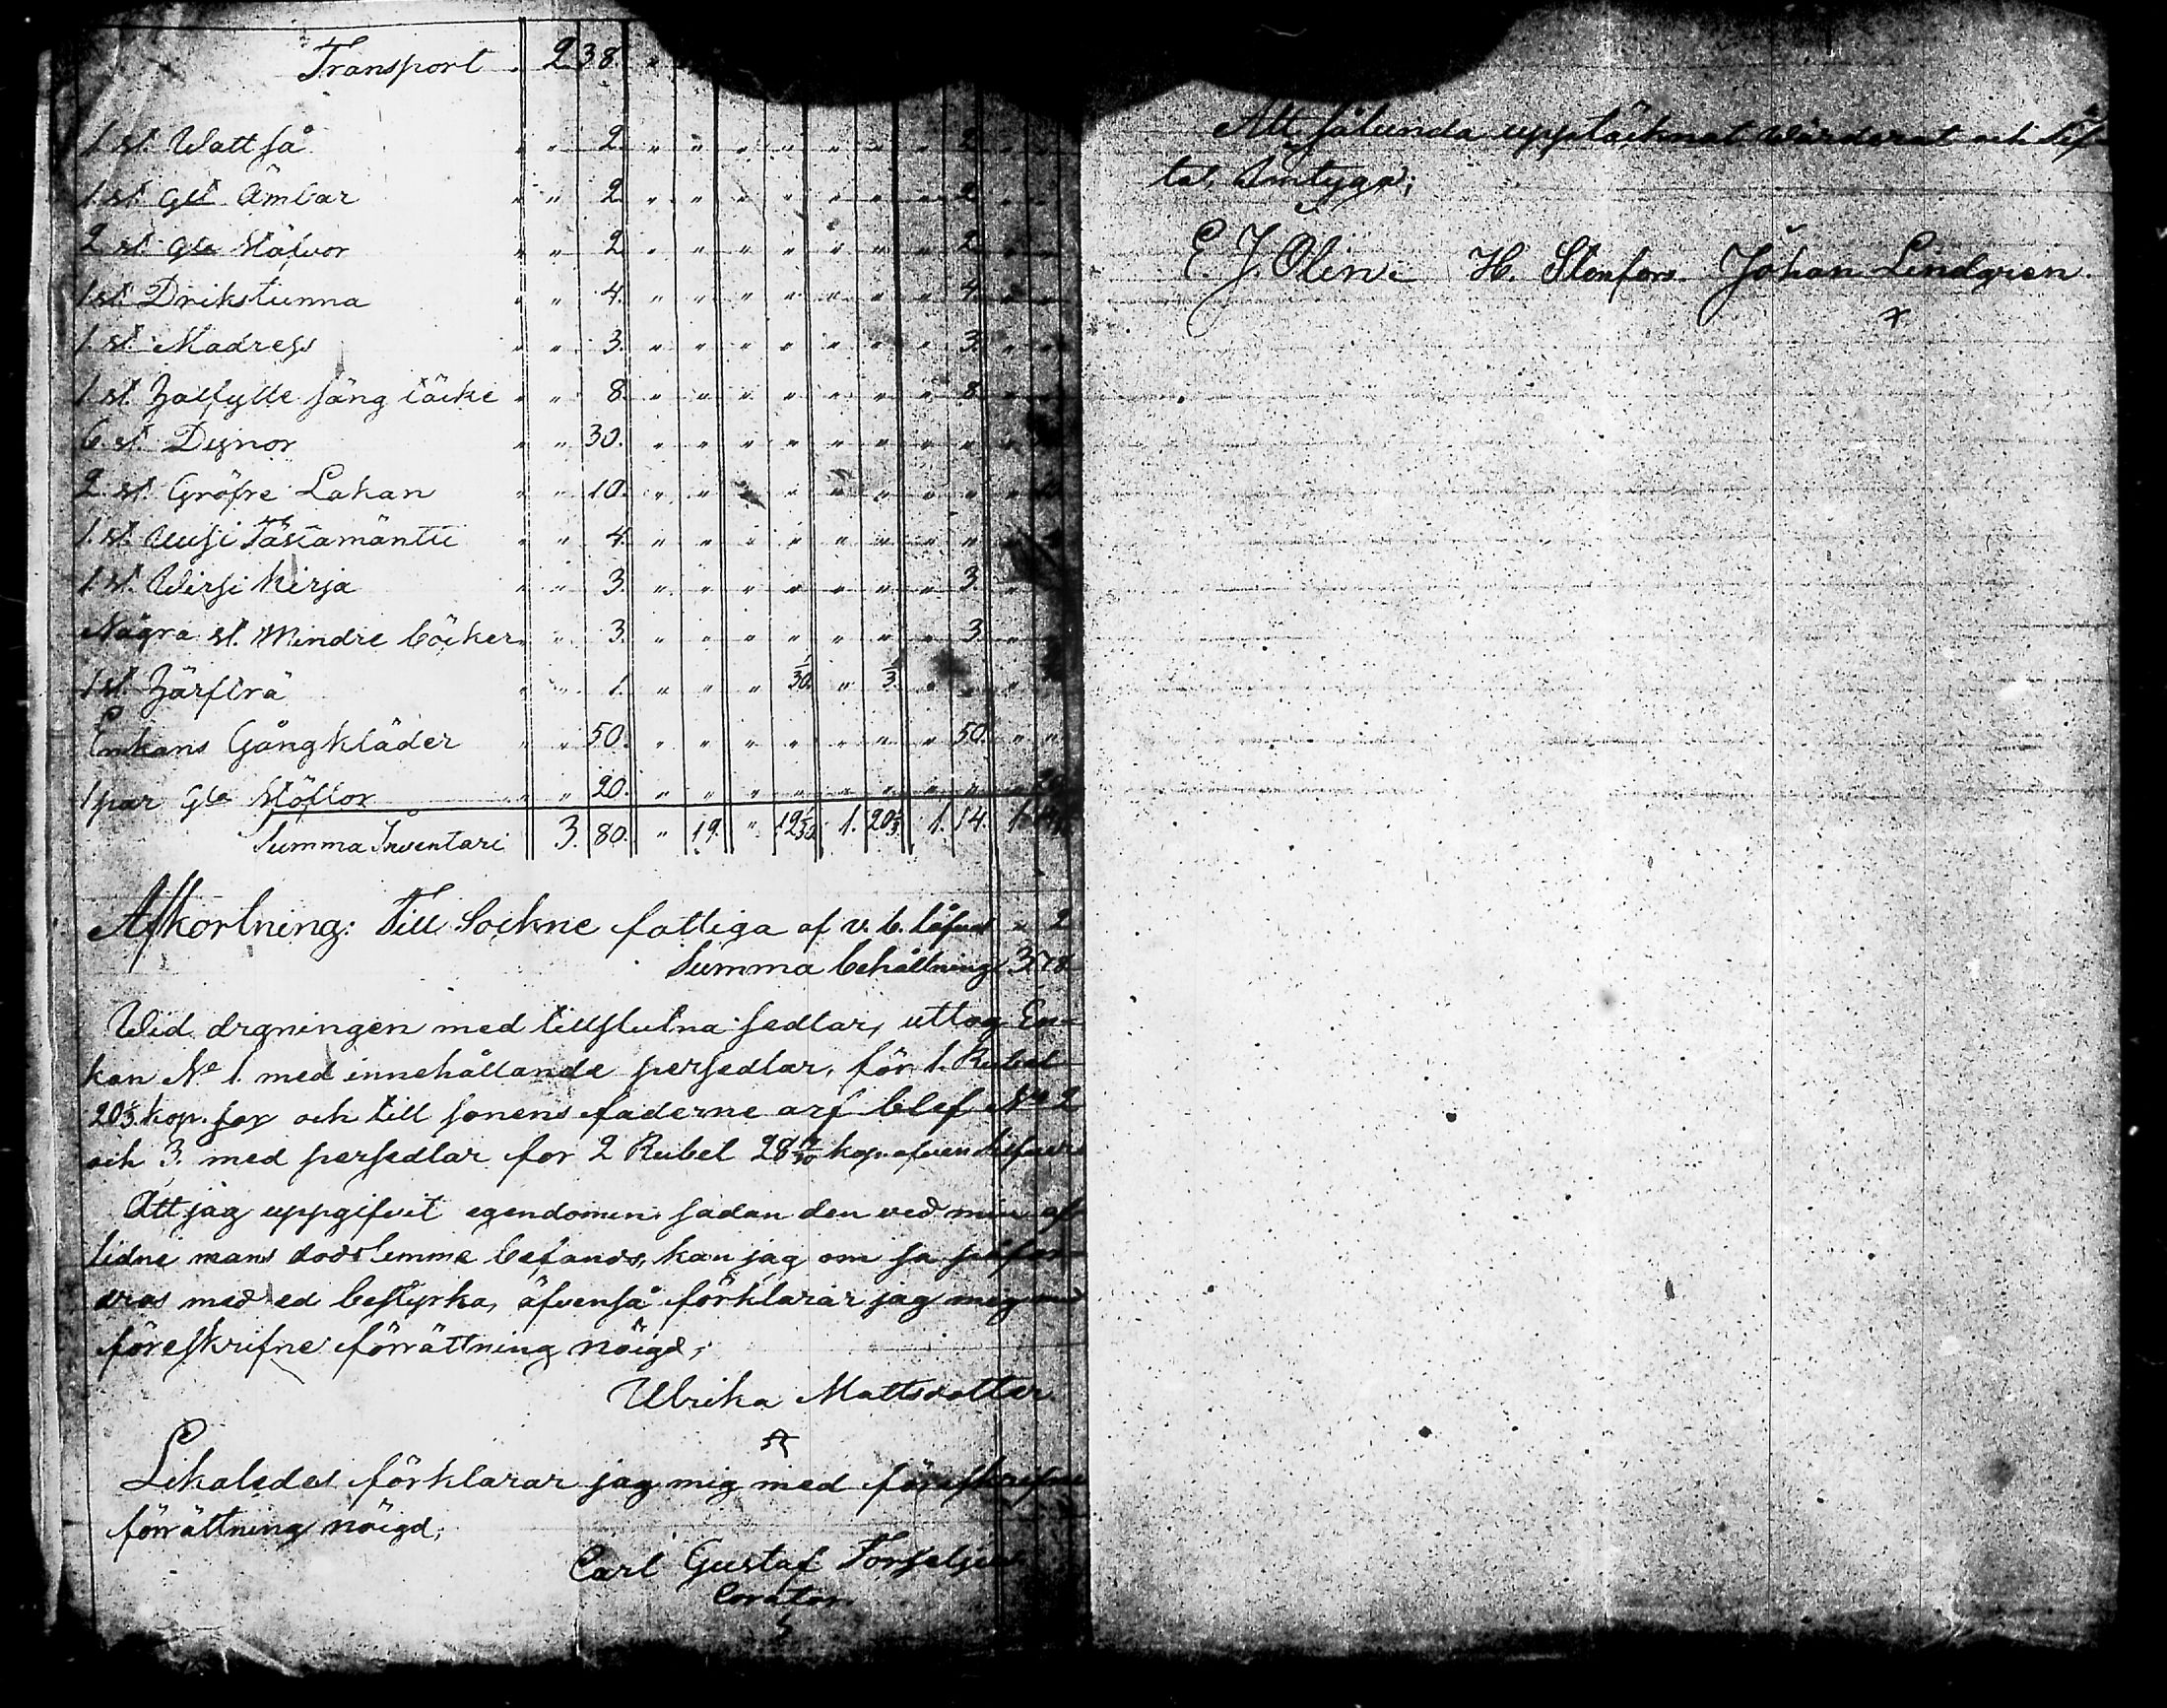 Transport 2 38. "
1 st. Watt så " " 2. " " " " " " " 2. " "
1. st. glt Ämbar " " 2. " " " " " " " 2. " "
2 st. gla Stäfvor " " 2. " " " " " " " 2. " "
1 st. Drikstunna " " 4. " " " " " " " 4. " "
1. st. Madrass " " 3. " " " " " " " 3. " "
1. st. säng täcke " " 8. " " " " " " " 8. " "
6. st. Dynor " " 30. " " " " " " " " "
2. st. Gröfre Lakan " " 10. " " " " " " " "
1. st. Uusi Tästamäntti " " 4. " " " " " " " "
1. st. Wirsi kirja " " 3. " " " " " " " 3. "
Några st. Mindre böcker " " 3. " " " " " " " 3. " "
1 st. " " 1. " " " 1/30. " 1/3. " " "
Enkans Gångkläder " " 50. " " " " " " " 50. " "
1 par gla Stöflor " " 20. " " " " " " " " " 20
Summa Inventari 3. 80. " 19. " 19 1/30. 1. 20 1/3. 1. 14. 1.
Afkortning: Till Sockne fattiga af v. b. " 2
Summa behållning 3.78
Wid dragningen med tillslutna sedlar, uttog En-
kan No 1. med innehållande persedlar, för 1. Rubel
20 1/3. kop. och till sonens faderne arf blef No 2
och 3. med persedlar for 2 Rubel 28 kop.
Att jag uppgifvit egendomen sådan den ved min af
lidne mans dödstemma befands, kan jag om så påfor
dras med ed bestyrka, äfvenså förklarar jag mig med
föreskrifne förrättning nöigd;
Ulrika Mattsdotter
Likaledes förklarar jag mig med föreskrifne
förrättning nöigd;
Carl Gustaf
Corator
Att sålunda upptäcknat Wärderat och
tat, Amtyga;
E. J. Olin. H. Stenfors Johan Lindgren.
x